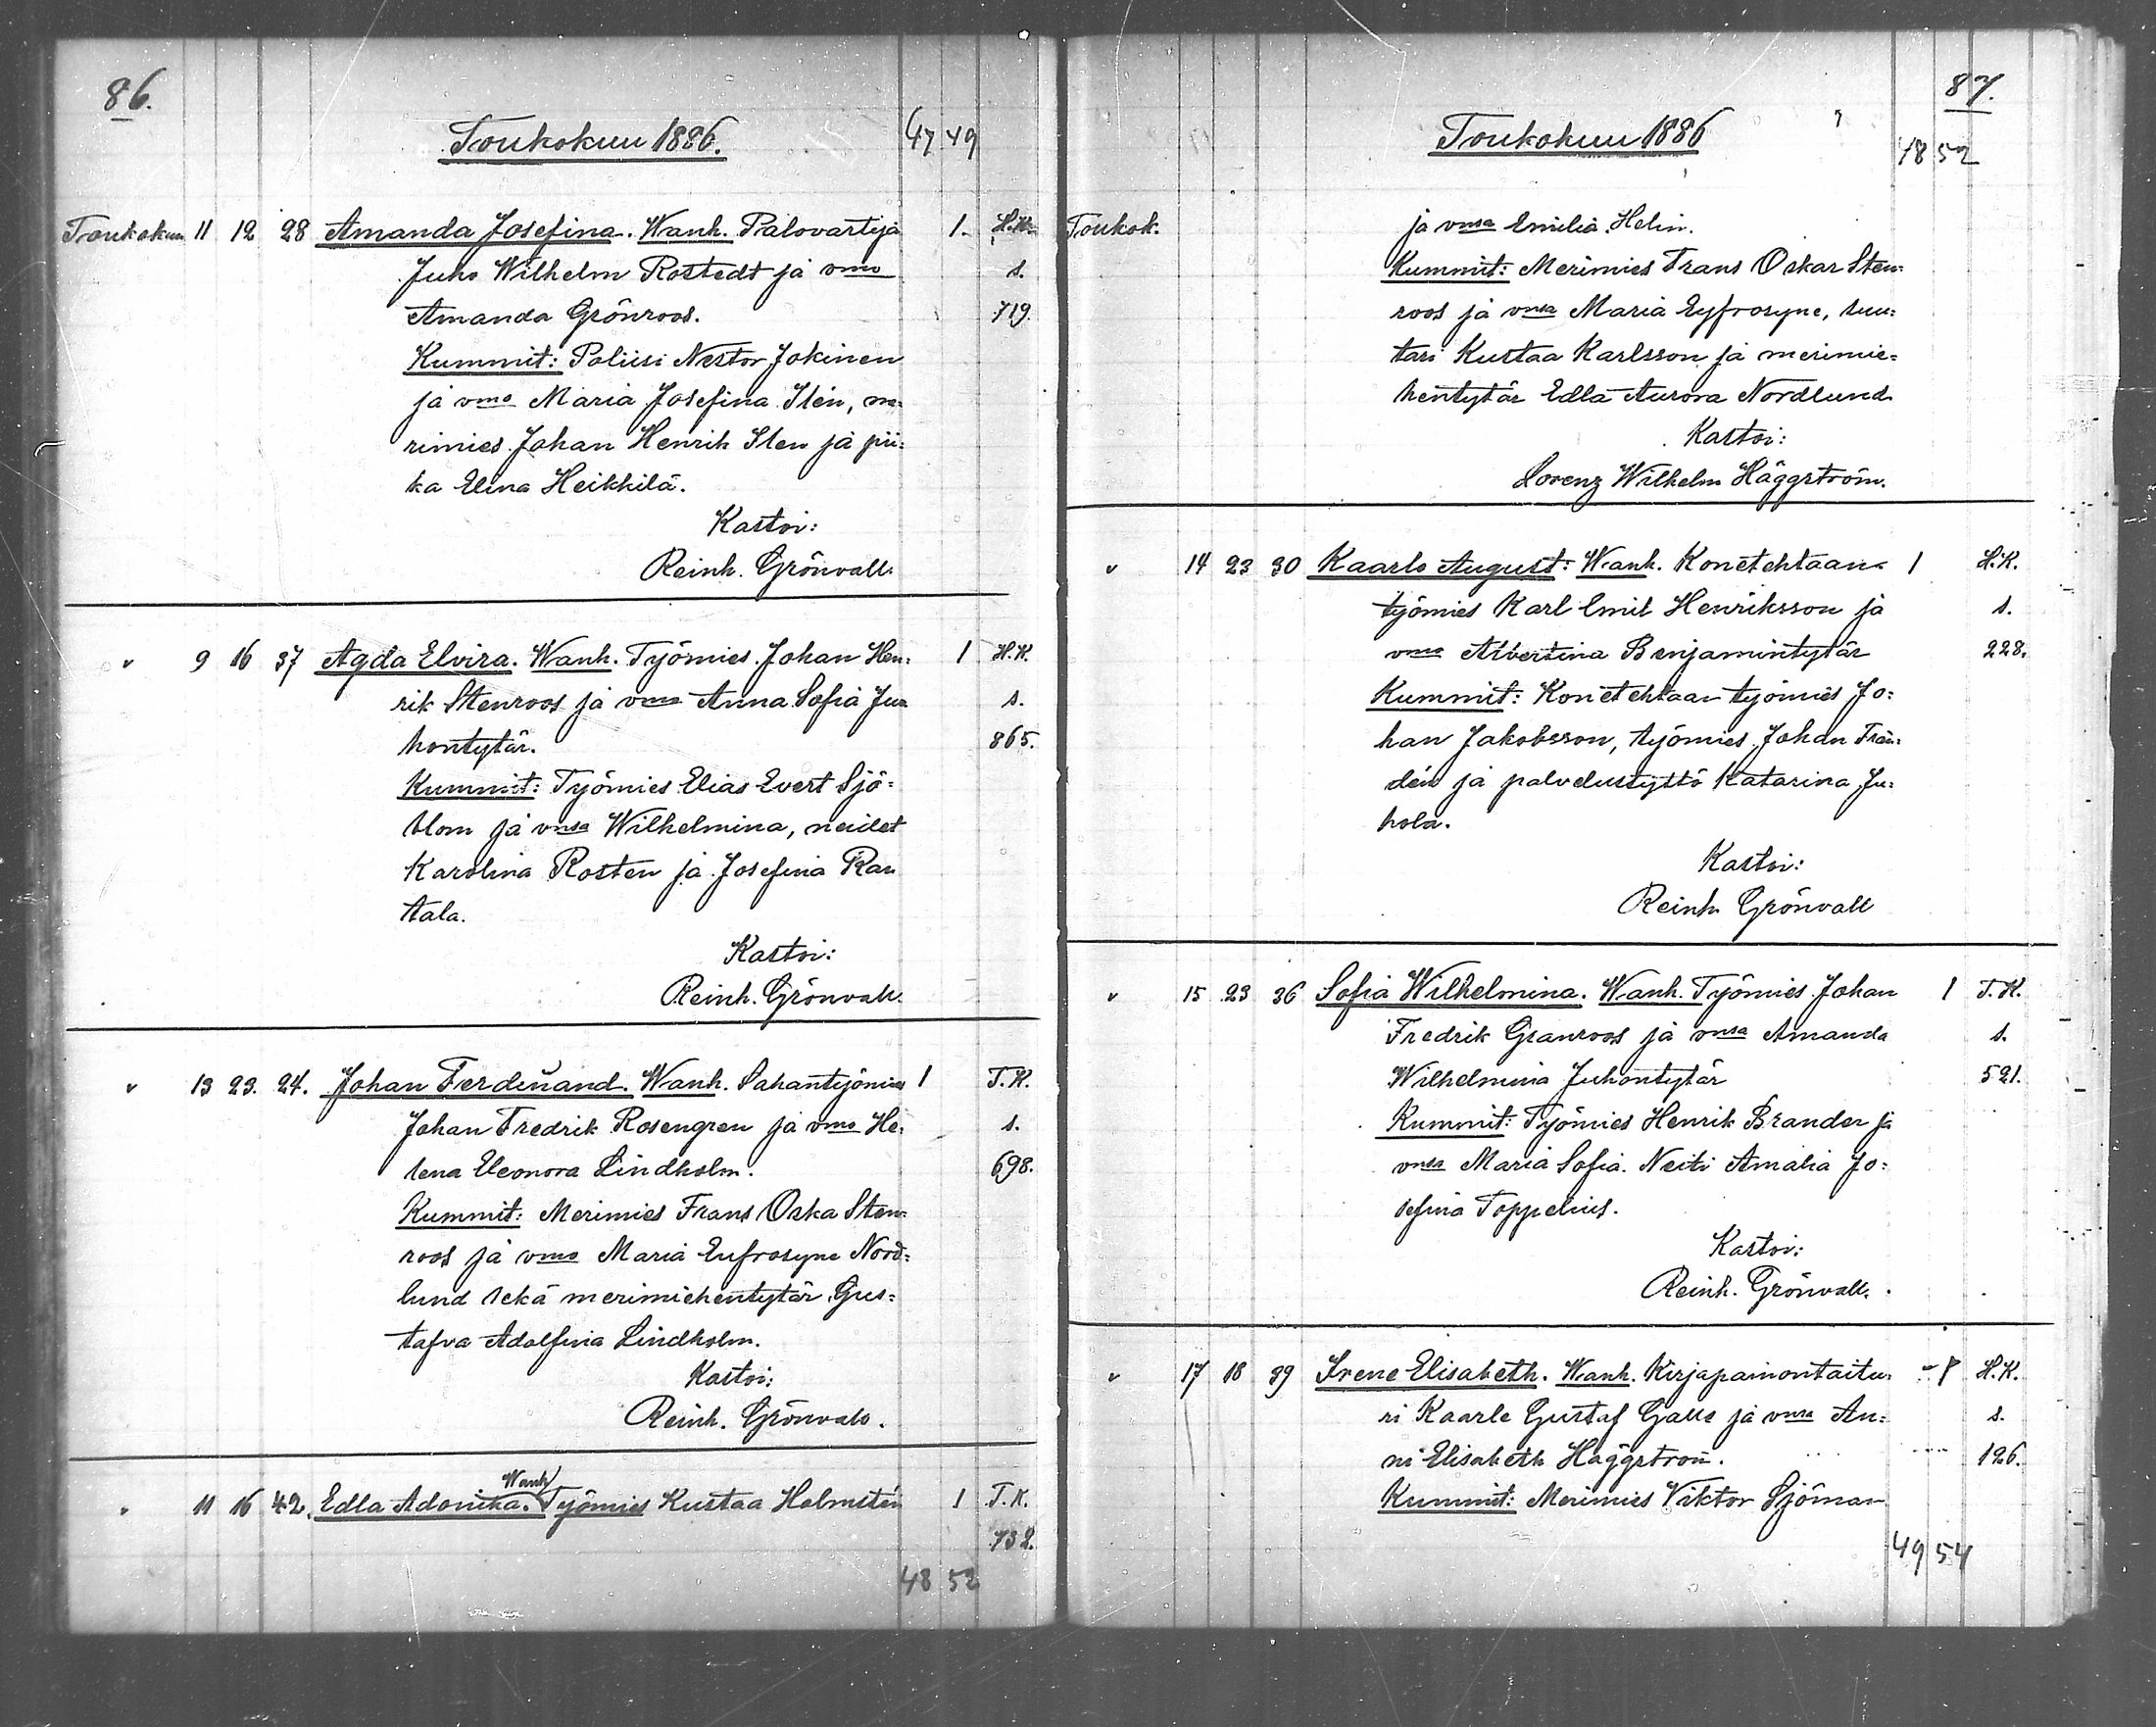 86.
Toukokuu 1886.
47 49
Toukokuu 11 12 28 Amanda Josefina. Wanh. Palovartija 1. H.K.
Juho Wilhelm Rostedt ja vmo s.
Amanda Grönroos. 719.
Kummit: Poliisi Nestor Jokinen
ja vmo Maria Josefina Stén, me-
rimies Johan Henrik Sten ja pii-
ka Elina Heikkilä.
Kastoi:
Reinh. Grönvall.
v 9 16 37 Agda Elvira. Wanh. Työmies Johan Hen- 1 H.K.
rik Stenroos ja vmo Anna Sofia Ju- s.
hontytär. 865.
Kummit: Työmies Elias Evert Sjö-
blom ja vnsa Wilhelmina, neidet
Karolina Rosten ja Josefina Ran
tala.
Kastoi:
Reinh. Grönvall.
v 13 23. 24. Johan Ferdinand. Wanh. Sahantyömies 1 T.K.
Johan Fredrik Rosengren ja vmo He- s.
lena Eleonora Lindholm. 698.
Kummit: Merimies Frans Oska Sten-
roos ja vmo Maria Eufrosyne Nord-
lund sekä merimiehentytär Gus-
tafva Adolfina Lindholm.
Kastoi:
Reinh. Grönvall.
Wanh
v 11 16 42. Edla Adonika. Työmies Kustaa Holmstén 1 T.K.
732.
48 52
87.
Toukokuu 1886
48 52
Toukok. ja vnsa Emilia Helin.
Kummit: Merimies Frans Oskar Sten-
roos ja vnsa Maria Eyfrosyne, suu-
tari Kustaa Karlsson ja merimie-
hentytär Edla Aurora Nordlund
Kastoi:
Lorenz Wilhelm Häggström.
v 14 23 30 Kaarlo August: Wanh. Konetehtaan- 1 H.K.
työmies Karl Emil Henriksson ja s.
vmo Albertina Benjamintytär 228.
Kummit: Konetehtaan työmies Jo-
han Jakobsson, työmies Johan Frän-
dén ja palvelustyttö Katarina Ju-
hola.
Kastoi:
Reinh. Grönvall
v 15 23 36 Sofia Wilhelmina. Wanh. Työmies Johan 1 T.K.
Fredrik Granroos ja vnsa Amanda s.
Wilhelmina Juhontytär 521.
Kummit: Työmies Henrik Brander ja
vnsa Maria Sofia. Neiti Amalia Jo-
sefina Toppelius.
Kastoi:
Reinh. Grönvall.
v 17 18 39 Irene Elisabeth. Wanh. Kirjapainontaitu- 1 H.K.
ri Kaarle Gustaf Galle ja vnsa An- s.
ni Elisabeth Häggström. 126.
Kummit: Merimies Viktor Sjöman
49 54